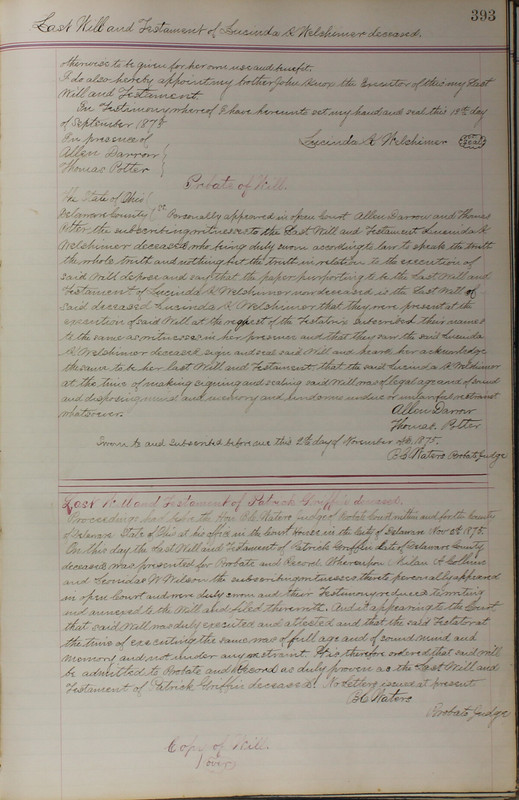 393
Last Will and Testament of Lucinda A Welshimer deceased.
otherwise to be given for her own use and benefit.
I do also hereby appoint my brother John Knox the Executor of this my Last
Will and Testament.
In Testimony whereof I have hereunto set my hand and seal this 15th day
of September 1875
In presence of Lucinda A Welshimer Seal
Allen Darrow
Thomas Potter
Probate of Will.
The State of Ohio
Delaware County SS. Personally appeared in open Court Allen Darrow and Thomas
Potter the subscribing witnesses to the Last Will and Testament Lucinda A
Welshimer deceased, who being duly sworn according to law to speak the truth
the whole truth and nothing but the truth in relation to the execution of
said Will depose and say that the paper purporting to be the Last Will and
Testament of Lucinda A Welshimer now deceased is the Last Will of
said deceased Lucinda A Welshimer that they were present at the
execution of said Will at the request of the Testatrix subscribed their names
to the same as witnesses in her presence and that they saw the said Lucinda
A Welshimer deceased sign and seal said Will and heard her acknowledge
the same to be her last Will and Testament that the said Lucinda A Welshimer
at the time of making signing and sealing said Will was of legal age and of sound
and disposing mind and memory and under no undue or unlawful restraint
whatsoever.
Allen Darrow
Thomas Potter
Sworn to and subscribed before me this day of November 1875.
B.C. Waters Probate Judge
Last Will and Testament of Patrick Griffin deceased.
Proceedings had before the Hon B.C. Waters Judge of Probate Court within and for the County
of Delaware State of Ohio at his office in the Court House in the City of Delaware Nov 1875.
On this day the Last Will and Testament of Patrick Griffin late of Delaware County
deceased was presented for Probate and Record Whereupon A Collins
and Leonidas W Wilson the subscribing witnesses thereto personally appeared
in open Court and were duly sworn and their Testimony reduced to writing
and annexed to the Will and filed therewith. And it appearing to the Court
that said Will was duly executed and attested and that the said Testator at
the time of executing the same was of full age and of sound mind and
memory and not under any restraint. It is therefore ordered that said will
be admitted to Probate and Record as duly proven as the Last Will and
Testament of Patrick Griffin deceased. No Letters issued at present
B.C. Waters
Probate Judge
Copy of Will.
(over)